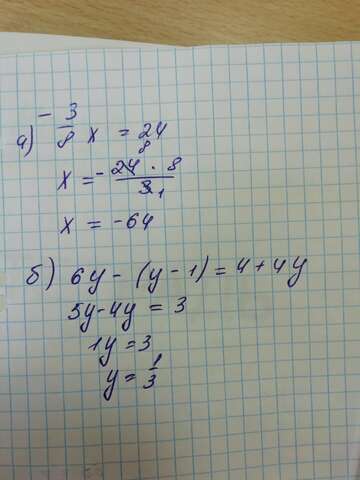 а) - 3/8 x = 24
x = - 24 8 · 8 / 3 1
x = -64
б) 6y - (y - 1) = 4 + 4y
5y - 4y = 3
1y = 3
y = 1/3